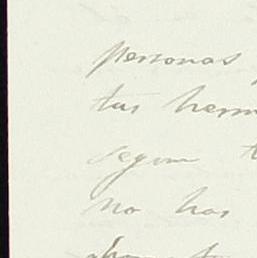 personas
tus herm
segun t
no has